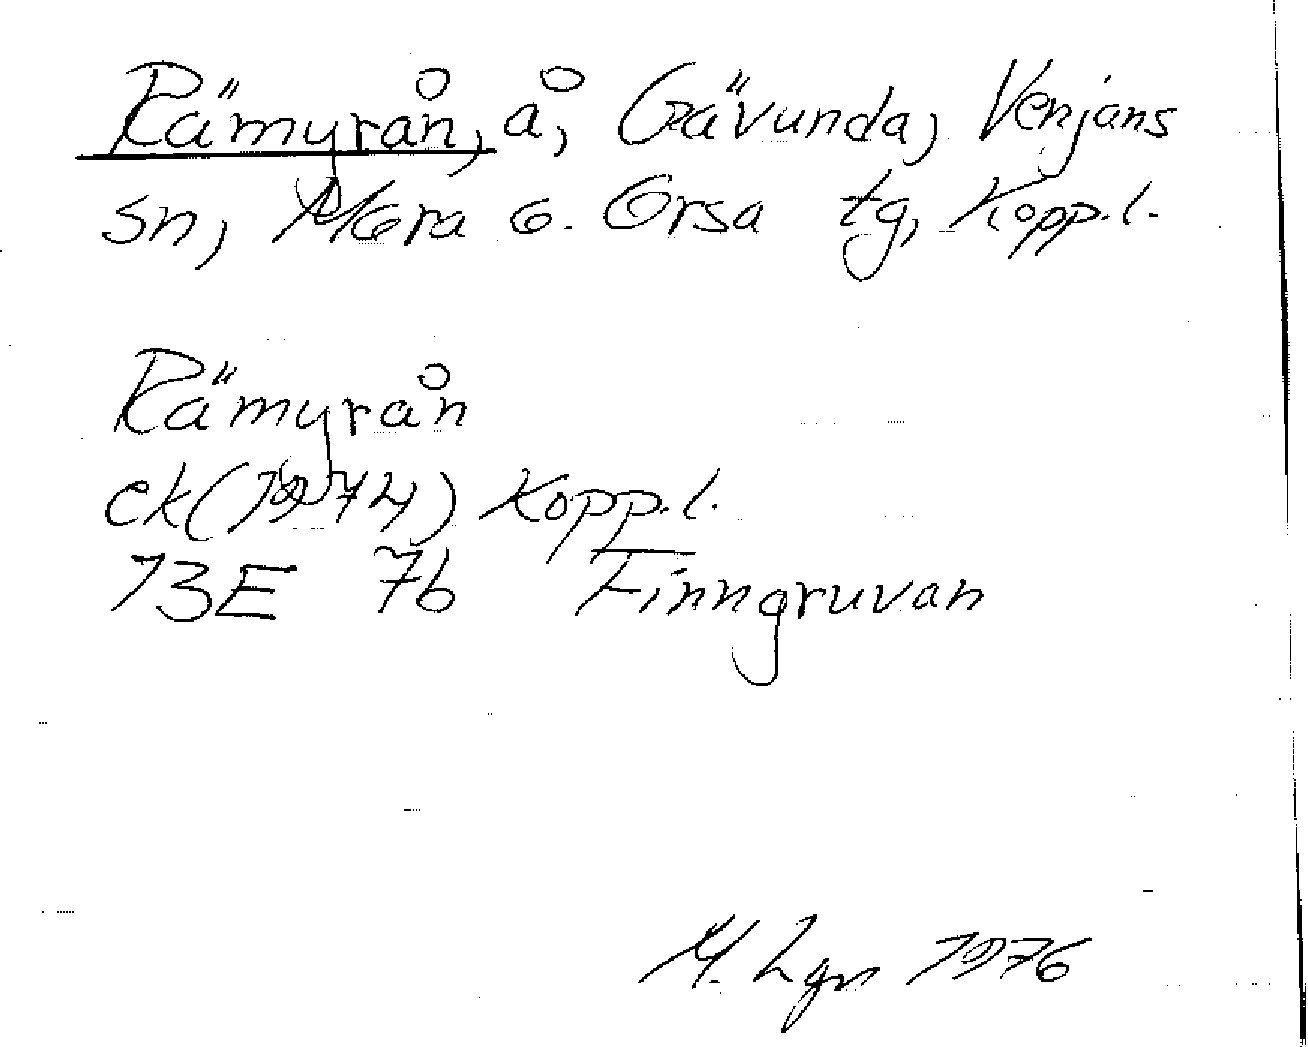 Rämyrån, å, Gävunda, Venjans
sn, Mora o. Orsa tg, Kopp.l.
Rämyrån
ek(1974) Kopp.l.
13E 7b Finngruvan
M. Lgn 1976